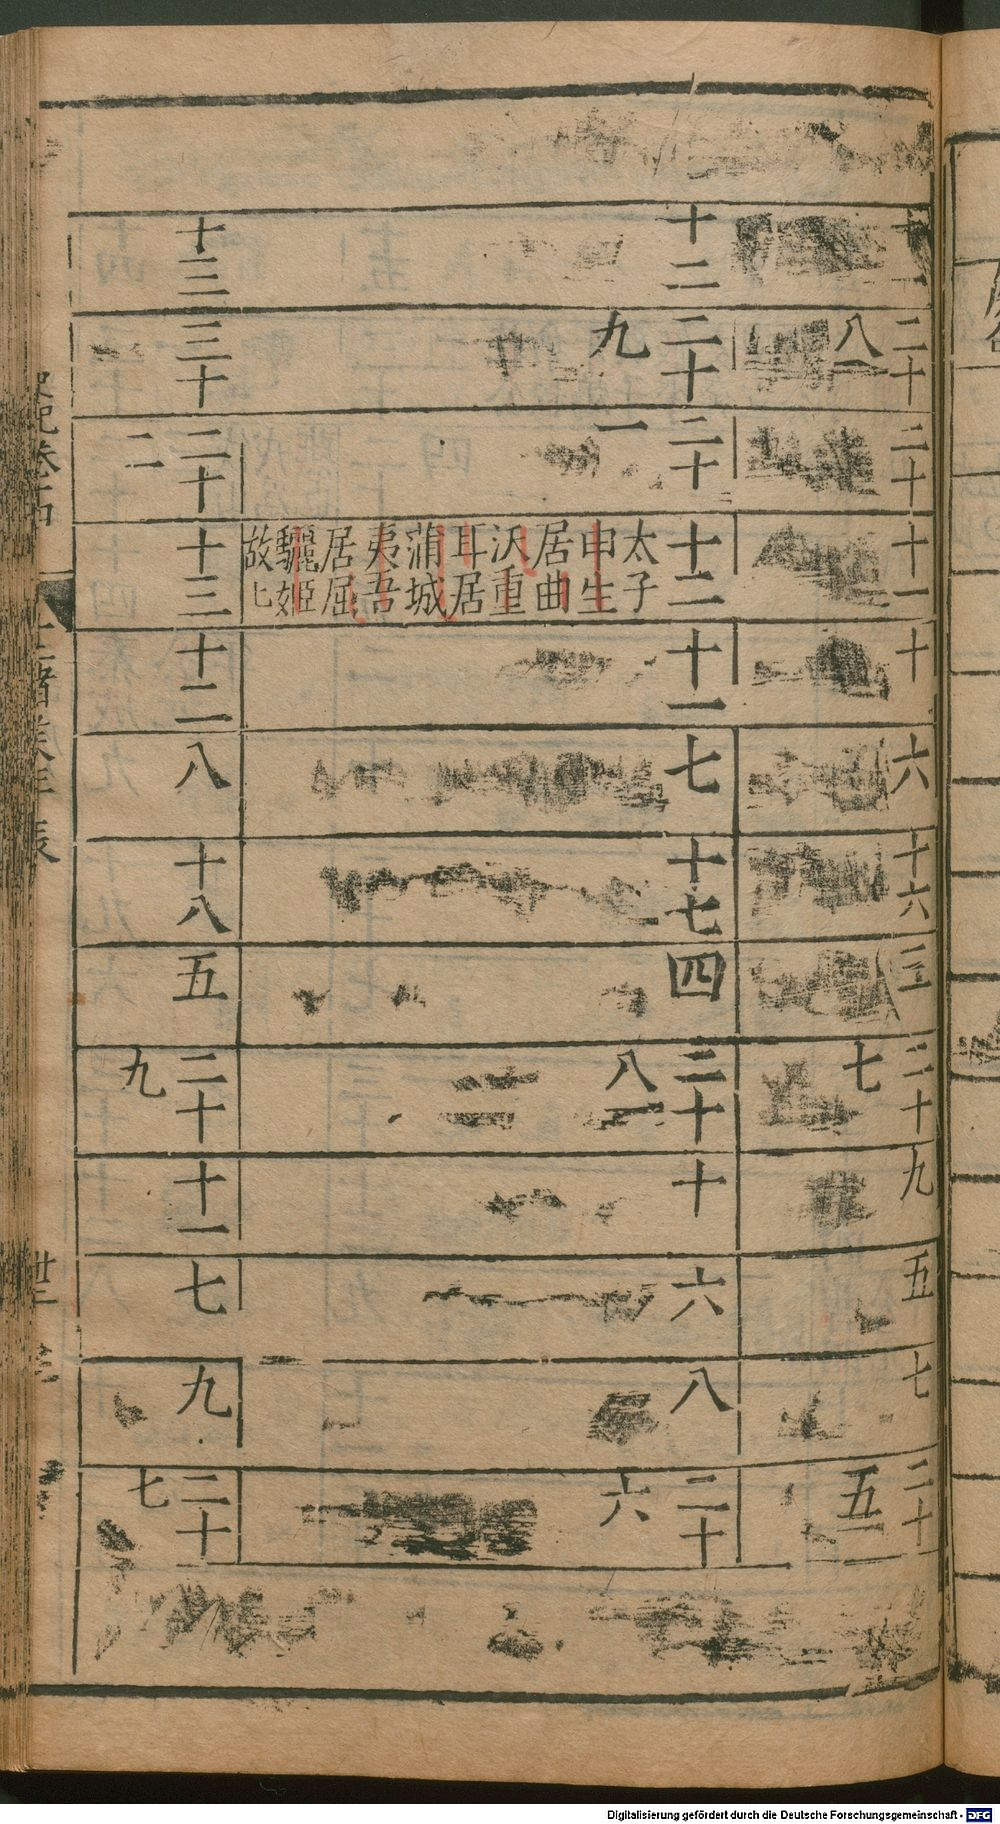 十一
二十
八
二十
十一
十
六
十六
三
二十
七
九
五
七
二十
五
十二
二十
九
二十
一
十二
太子
申生
居曲
沃重
耳居
蒲城
夷吾
居屈
驪姬
故
十一
七
十七
四
二十
八
十
六
八
二十
六
十三
三十
二十
二
十三
十二
八
十八
五
二十
九
十一
七
九
二十
七
Digitalisierung gefördert durch die Deutsche Forschungsgemeinschaft - DFG